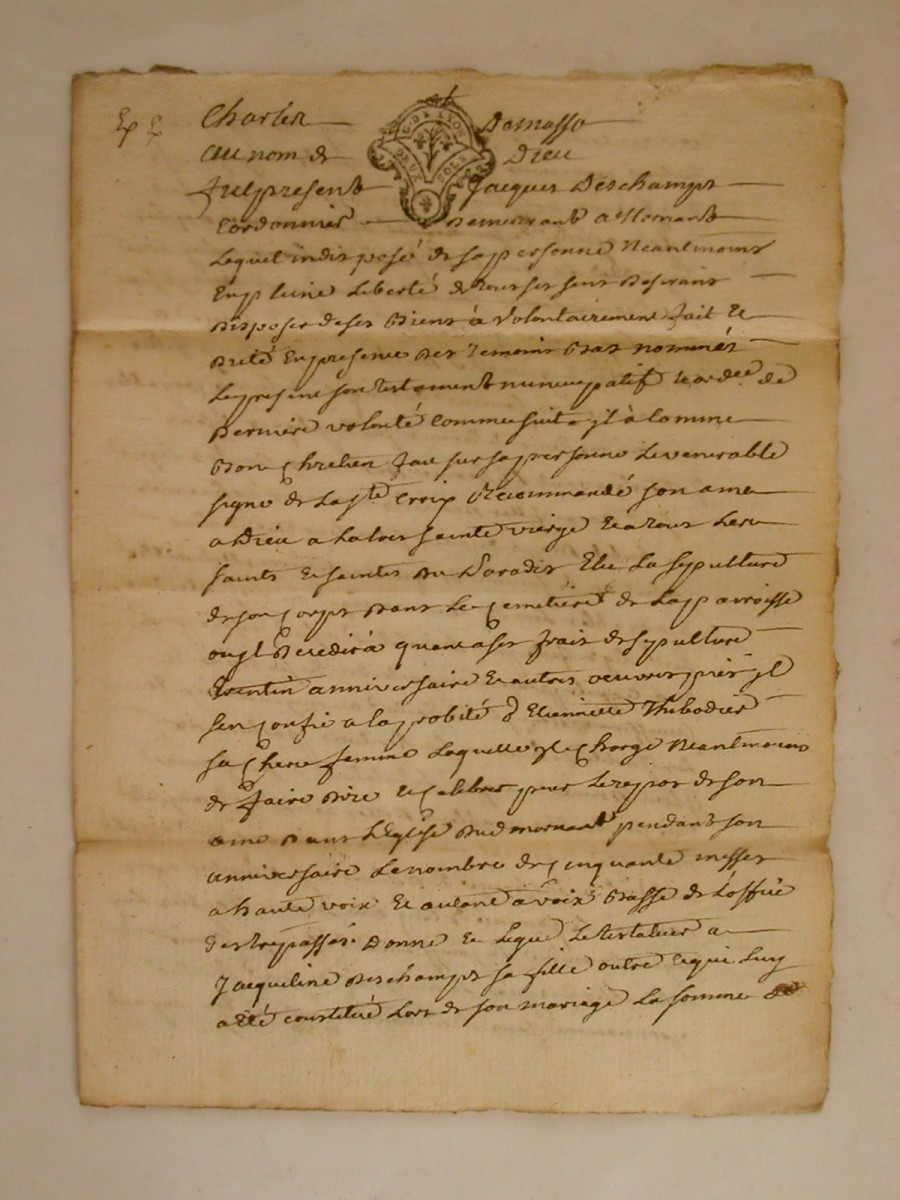 Charles Damasse
G. DE LYON
DEUX SOLS
Au nom de Dieu
fut present Jacques Deschamps
Cordonnier Demeurant a Mornant
Lequel indisposé de sa personne Neantmoins
En pleine Liberté de tous ses sens Desirant
Disposer de ses Biens à volontairement fait Et
Dicté En presence Des Temoins Bas nommés
Le present son testament nuncupatif et ordce de
Derniere volonté Comme suit yl à Comme
Bon Chretien fait sur sa personne Le venerable
signe de La ste Croix Recommandé son ame
a Dieu a La tres sainte vierge Et a tous Les
saints Et saintes Du Paradis Elu La sepulture
de son Corps Dans Le Cemetière de La parroisse
ou yl Decedera quant a ses frais de sepulture
anniversaire Et autres oeuvres pies yl
s'en Confie a La probité d'Etiennette Thibodier
sa Chere femme Laquelle yl Charge Neantmoins
de faire Dire Et Celebrer pour Le repos de son
ame Dans L'Eglise Dud mornant pendant son
anniversaire Le nombre de Cinquante messes
a haute voix Et autant a voix Basse de L'office
des trepassés. Donne Et Legue Le testateur a
Jacqueline Deschamps sa fille outre ce qui Luy
a Eté constitué Lors de son mariage La somme de